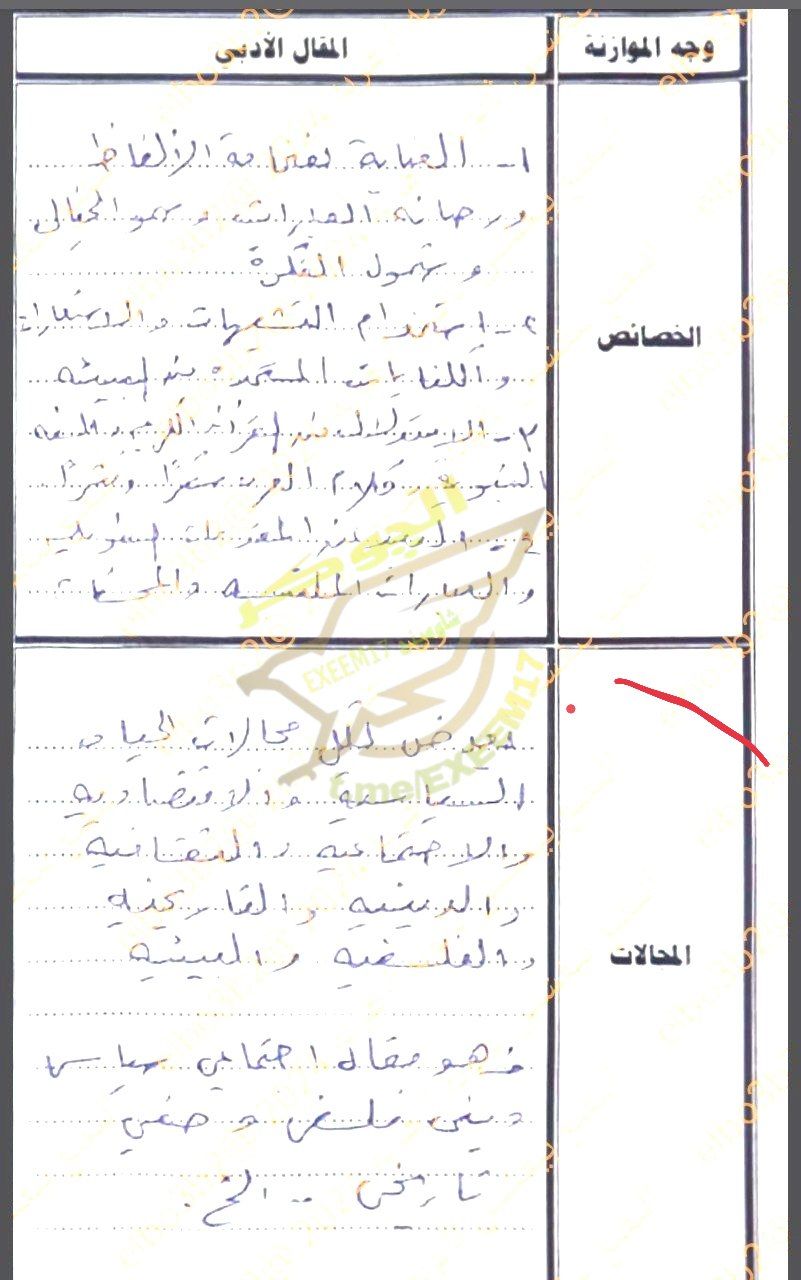 وجه الموازنة
المقال الأدبي
الخصائص
١- العناية بفخامة الألفاظ
ورصانة العبارات وسمو الخيال
وشمول الفكرة
٢- استخدام التشبيهات والاستعارات
والكنايات المستمدة من البيئة
٣- الاستدلال من القرآن الكريم والسنة
النبوية وكلام العرب شعرًا ونثرًا
والعبارات والمحسنات
المجالات
تعرض لكل مجالات الحياة
السياسية والاقتصادية
والاجتماعية والثقافية
والدينية والتاريخية
والفلسفية والبيئية
فهو مقال اجتماعي سياسي
ديني فلسفي وصفي
تاريخي .. الخ.
الجوكر
EXEEM17
t.me/EXEEM17